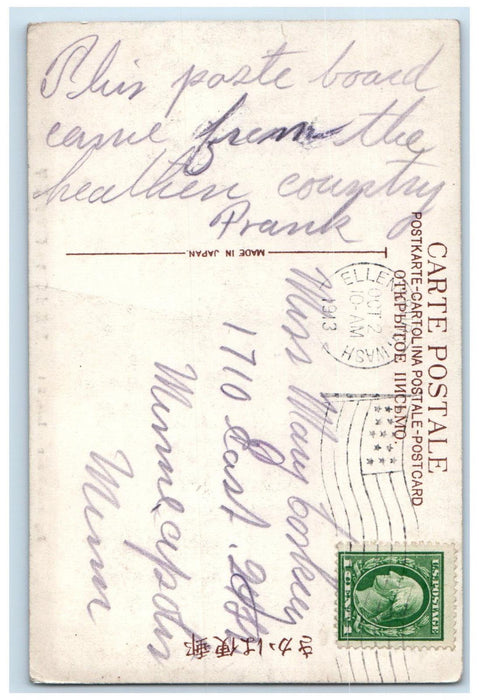 This paste board
came from the
heathen country
Frank
MADE IN JAPAN.
CARTE POSTALE
POSTKARTE-CARTOLINA POSTALE-POSTCARD
ОТКРЫТОЕ ПИСЬМО.
WASH
OCT 2
10-AM
1913
Miss Mary
1710 East.
Minneapolis
Minn
きかは便郵
U.S. POSTAGE
1 CENT 1